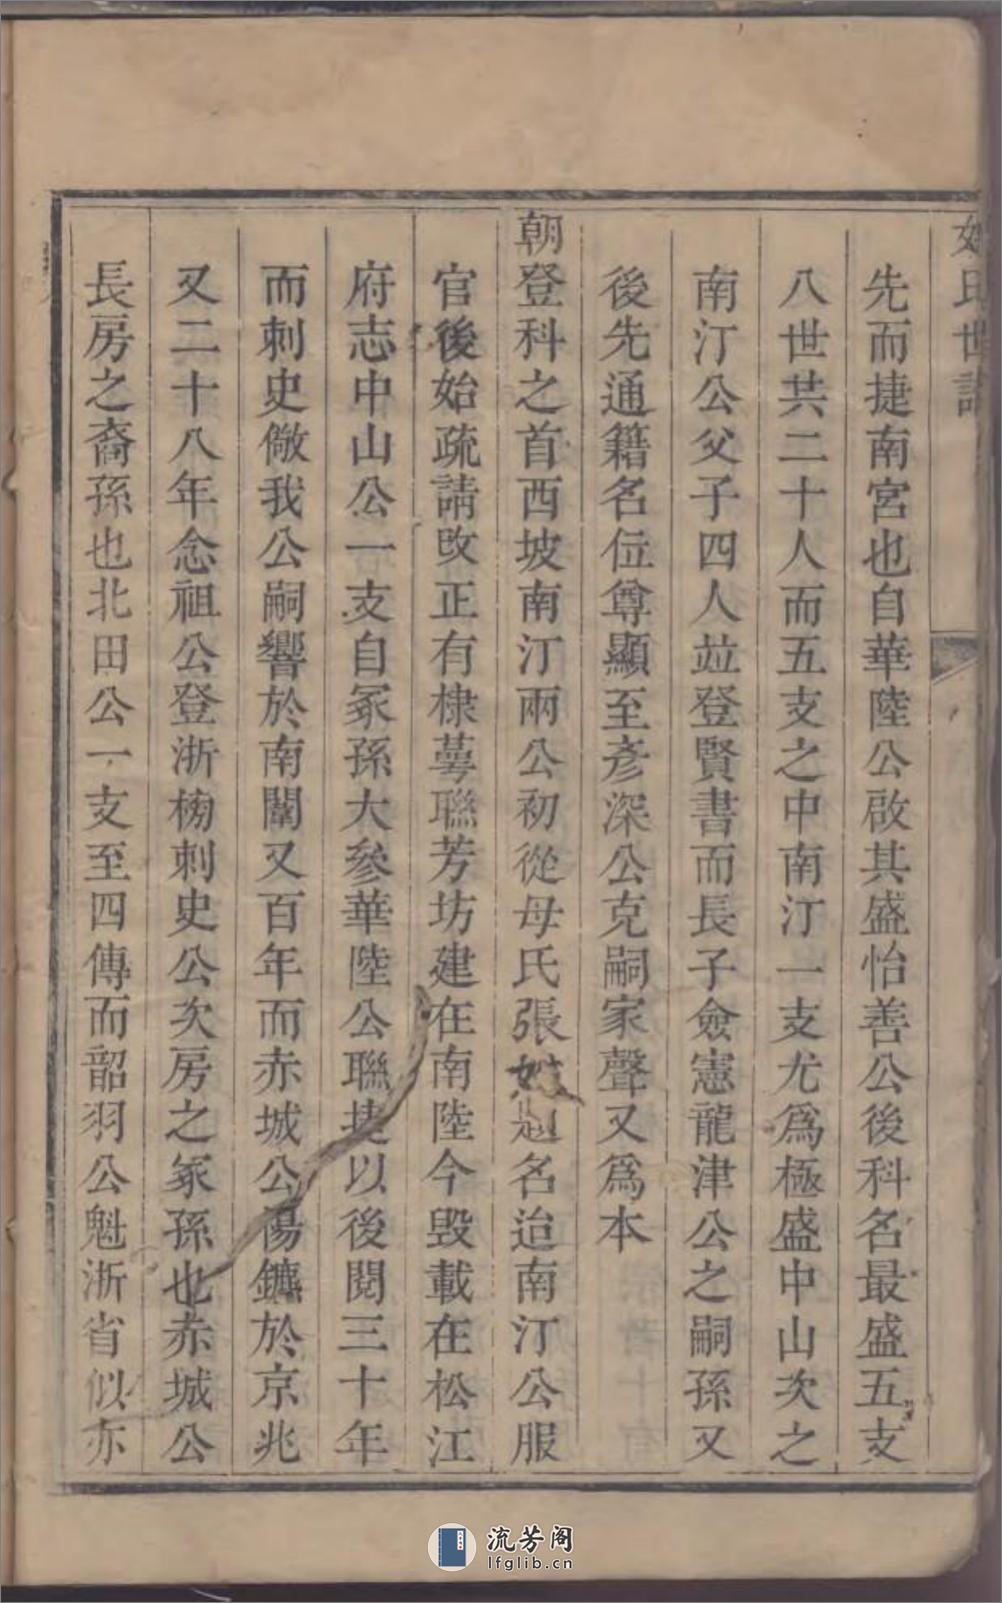 姚氏世譜
先而捷南宮也自華陸公啟其盛怡善公後科名最盛五支
八世共二十人而五支之中南汀一支尤為極盛中山次之
南汀公父子四人並登賢書而長子僉憲龍津公之嗣孫又
後先通籍名位尊顯至彥深公克嗣家聲又為本
朝登科之首西坡南汀兩公初從母氏張姓題名迨南汀公服
官後始疏請改正有棣萼聯芳坊建在南陸今毀載在松江
府志中山公一支自冢孫大參華陸公聯捷以後閱三十年
而刺史儆我公嗣響於南闈又百年而赤城公揚鑣於京兆
又二十八年念祖公登浙榜刺史公次房之冢孫也赤城公
長房之裔孫也北田公一支至四傳而韶羽公魁浙省似亦
流芳阁
lfglib.cn